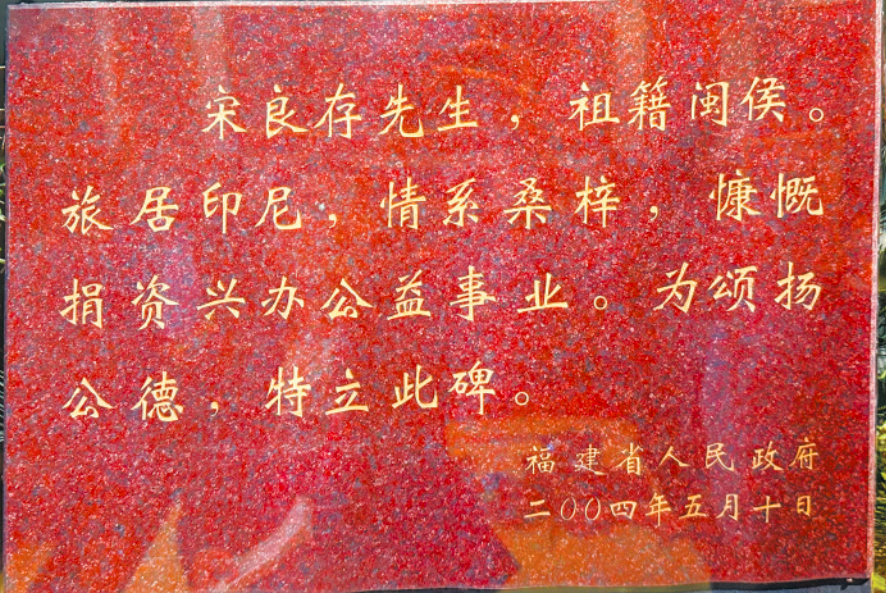 宋良存先生，祖籍闽侯。
旅居印尼，情系桑梓，慷慨
捐资兴办公益事业。为颂扬
公德，特立此碑。
福建省人民政府
二〇〇四年五月十日